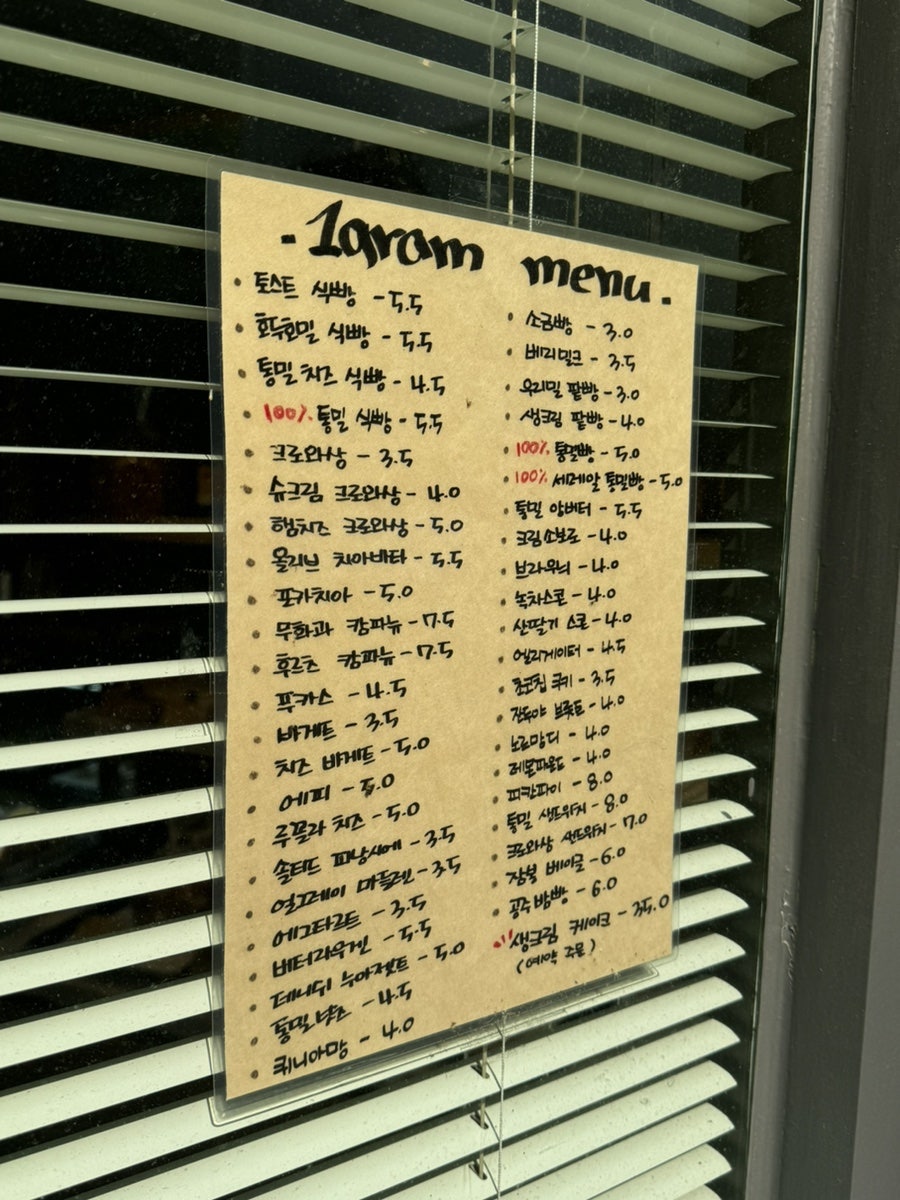 - 1gram menu -
• 토스트 식빵 - 5.5
• 호두호밀 식빵 - 5.5
• 통밀 치즈 식빵 - 4.5
• 100% 통밀 식빵 - 5.5
• 크로와상 - 3.5
• 슈크림 크로와상 - 4.0
• 햄치즈 크로와상 - 5.0
• 올리브 치아바타 - 5.5
• 포카치아 - 5.0
• 무화과 캄파뉴 - 7.5
• 후르츠 캄파뉴 - 7.5
• 푸카스 - 4.5
• 바게트 - 3.5
• 치즈 바게트 - 5.0
• 에피 - 5.0
• 루꼴라 치즈 - 5.0
• 솔티드 피낭시에 - 3.5
• 얼그레이 마들렌 - 3.5
• 에그타르트 - 3.5
• 버터라우겐 - 5.5
• 데니쉬 누아젯트 - 5.0
• 통밀 낭쇼 - 4.5
• 퀴니아망 - 4.0
• 소금빵 - 3.0
• 베리밀크 - 3.5
• 우리밀 팥빵 - 3.0
• 생크림 팥빵 - 4.0
• 100% 통밀빵 - 5.0
• 100% 세레알 통밀빵 - 5.0
• 통밀 앙버터 - 5.5
• 크림소보로 - 4.0
• 브라우늬 - 4.0
• 녹차스콘 - 4.0
• 산딸기 스콘 - 4.0
• 엘리게이터 - 4.5
• 초코칩 쿠키 - 3.5
• 잔두야 브룻도 - 4.0
• 노르망디 - 4.0
• 레몬파운드 - 4.0
• 피칸파이 - 8.0
• 통밀 샌드위치 - 8.0
• 크로와상 샌드위치 - 7.0
• 잠봉 베이글 - 6.0
• 공주밤빵 - 6.0
• 생크림 케이크 - 35.0
(예약 주문)